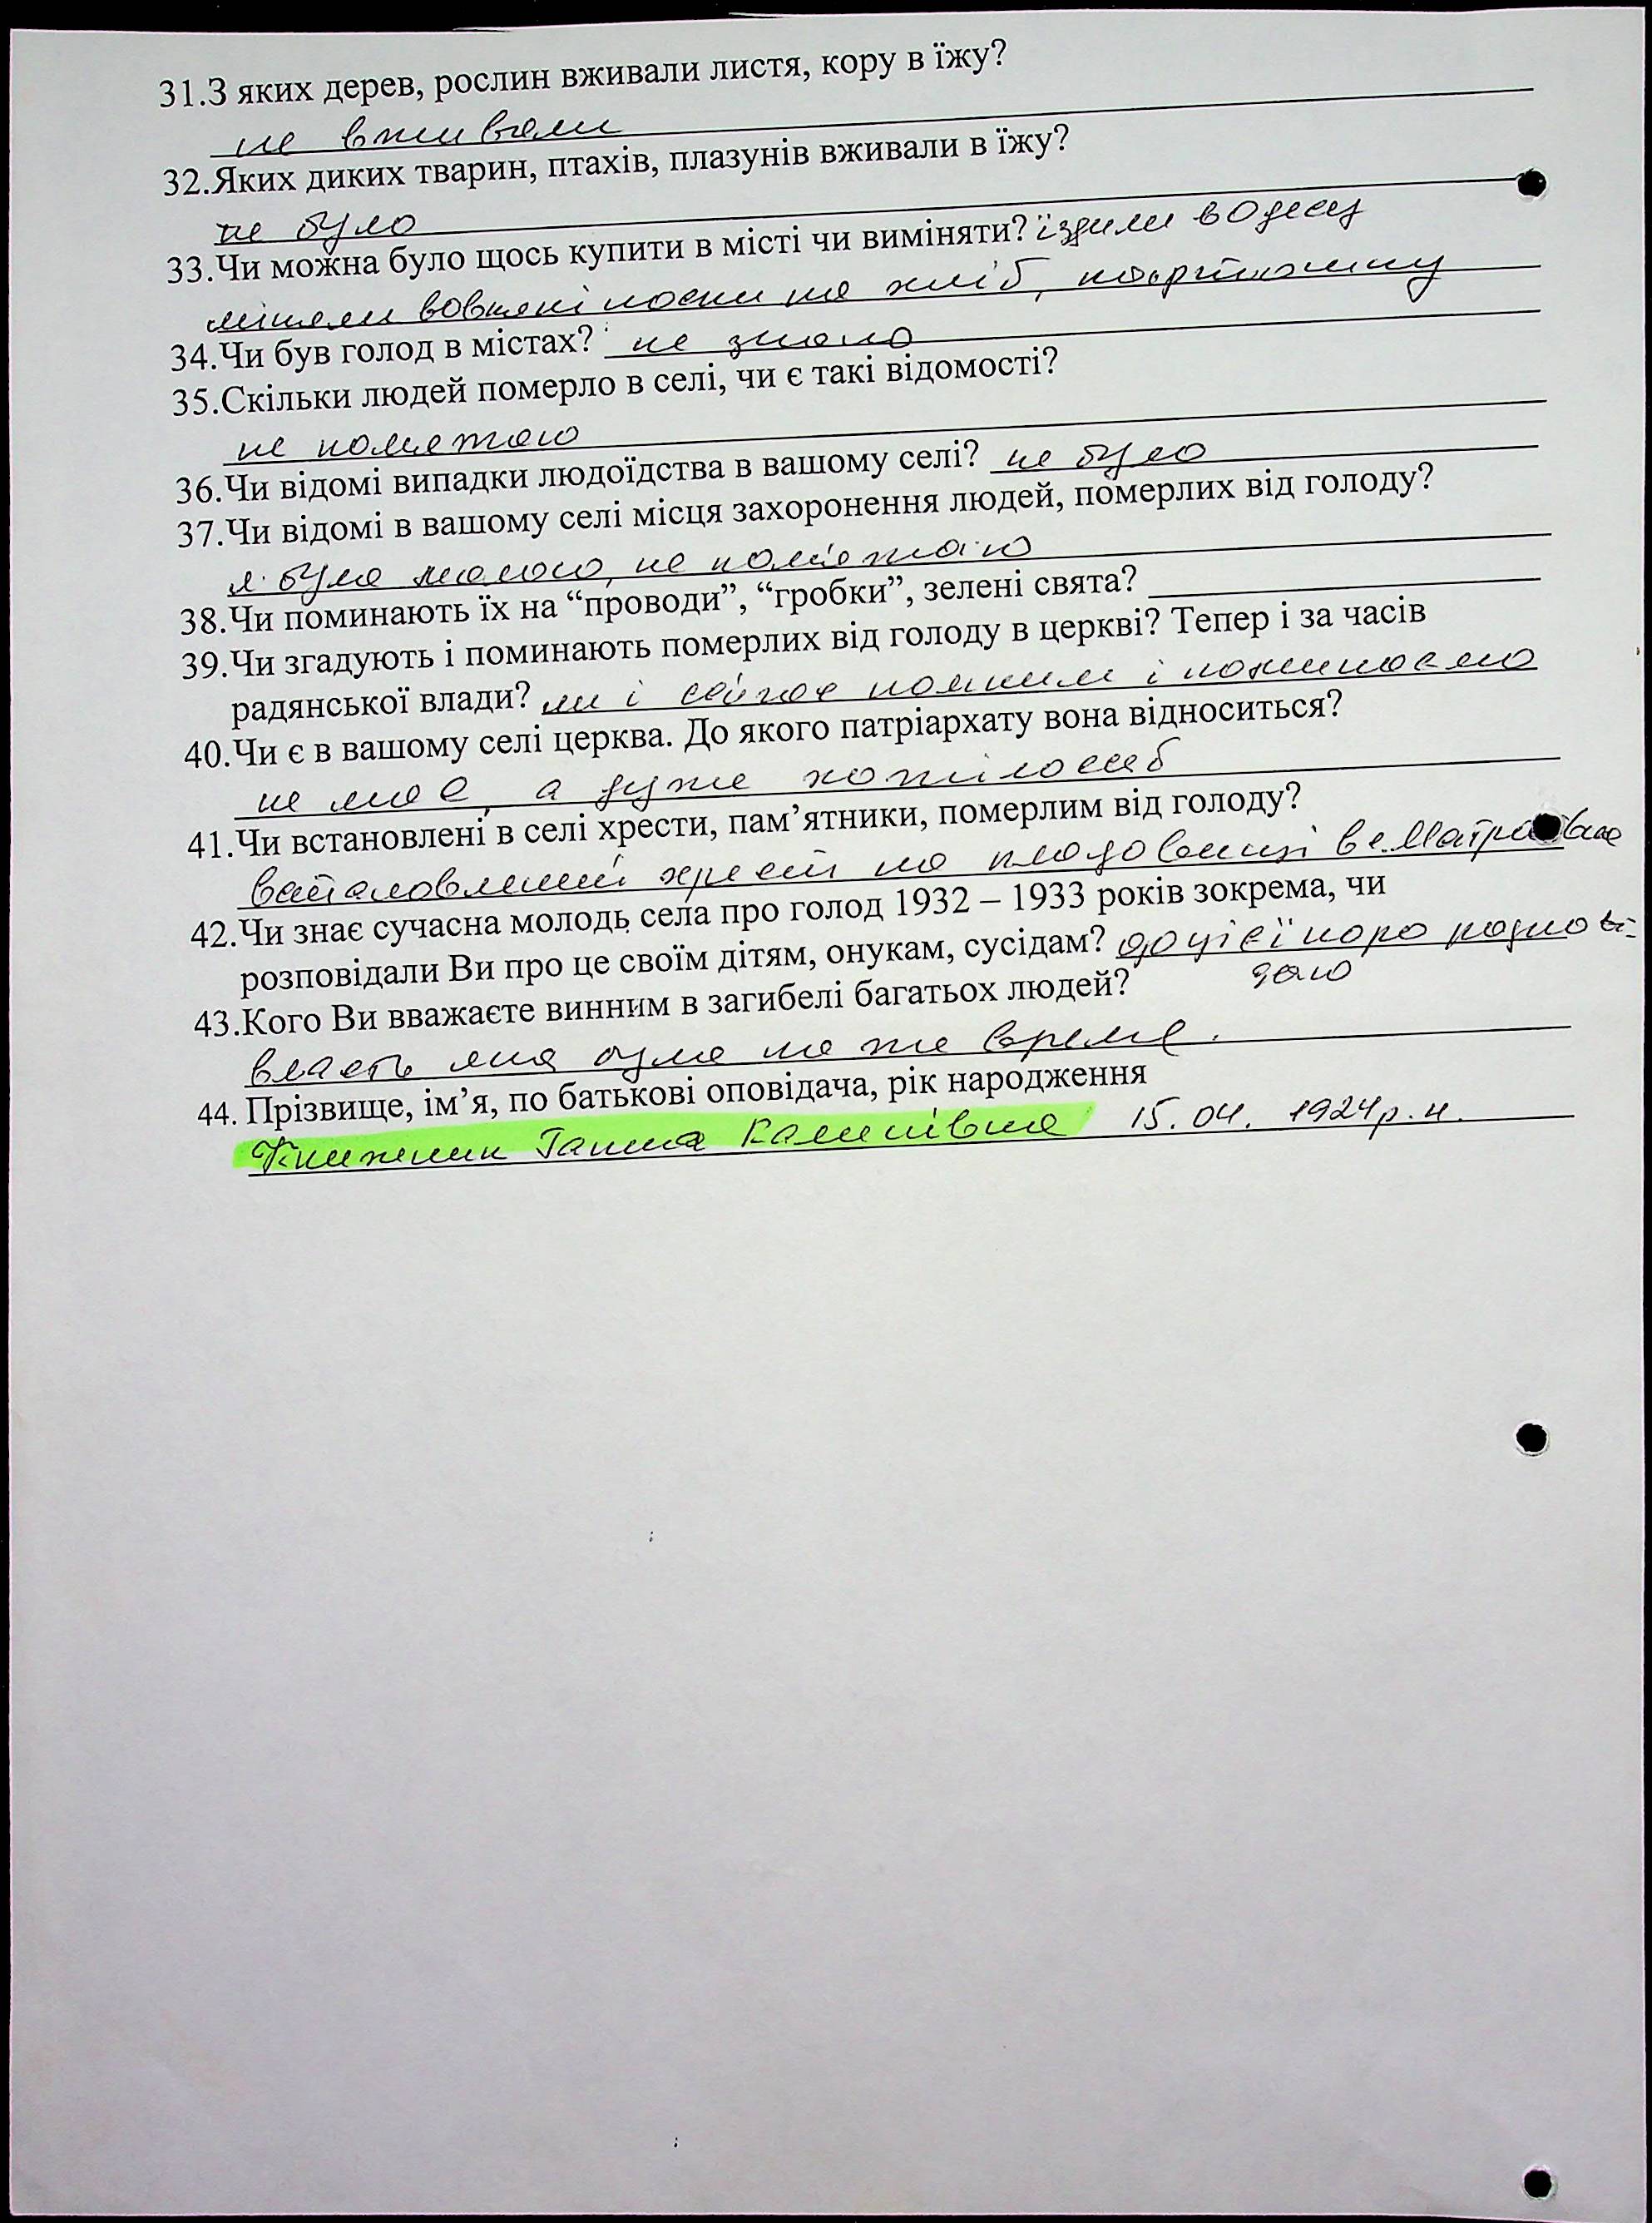 31.З яких дерев, рослин вживали листя, кору в їжу?
не вживали
32.Яких диких тварин, птахів, плазунів вживали в їжу?
не було
33.Чи можна було щось купити в місті чи виміняти? їздили в Одесу
міняли вовняні носки на хліб, картошку
34.Чи був голод в містах? не знаю
35.Скільки людей померло в селі, чи є такі відомості?
не помятаю
36.Чи відомі випадки людоїдства в вашому селі? не було
37.Чи відомі в вашому селі місця захоронення людей, померлих від голоду?
я була малою, не помятаю
38.Чи поминають їх на “проводи”, “гробки”, зелені свята?
39.Чи згадують і поминають померлих від голоду в церкві? Тепер і за часів
радянської влади? ми і сейчас помним і поминаємо
40.Чи є в вашому селі церква. До якого патріархату вона відноситься?
не має, а дуже хотілось б
41.Чи встановлені в селі хрести, пам’ятники, померлим від голоду?
встановлений хрест на кладовищі в с.
42.Чи знає сучасна молодь села про голод 1932 – 1933 років зокрема, чи
розповідали Ви про це своїм дітям, онукам, сусідам? до цієї пори розпові-
даю
43.Кого Ви вважаєте винним в загибелі багатьох людей?
власть яка була на те время.
44. Прізвище, ім’я, по батькові оповідача, рік народження
Ганна 15.04.1924р.н.